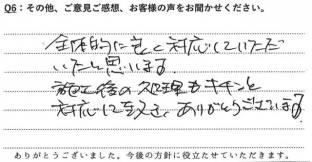 Q6：その他、ご意見ご感想、お客様の声をお聞かせください。
全体的に良く対応していただ
いたと思います
施工後の処理もキチンと
対応して ありがとうございます。
ありがとうございました。今後の方針に役立たせていただきます。